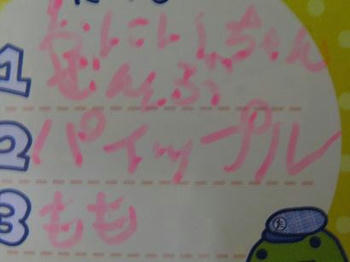 おにいちゃん
1 ぜんぶ
2 パイップル
3 もも